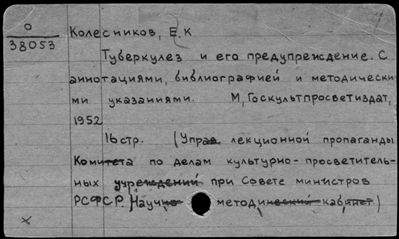 О
38053
Колесников, Е.К
Туберкулез и его предупреждение. С
аннотациями, библиографией и методически-
ми указаниями. М, Госкультпросветиздат,
1952
16 стр. (Управ. лекционной пропаганды
Комитета по делам культурно-просветитель-
ных учреждений при Совете министров
РСФСР. Научно методический кабинет)